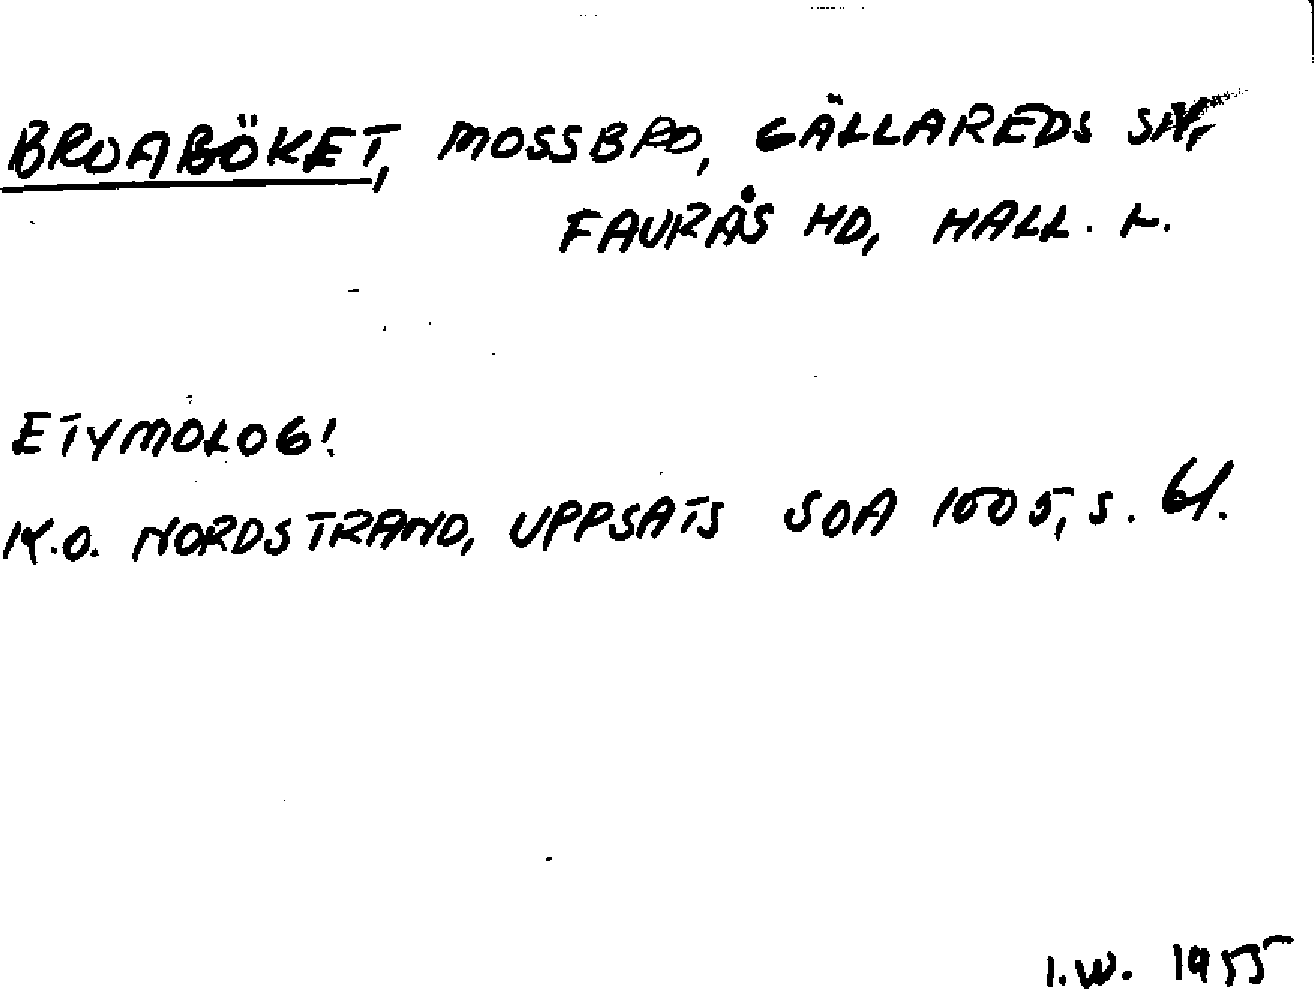 BROABÖKET, MOSSBRO, GÄLLAREDS SN,
FAURÅS HD, HALL. L.
ETYMOLOGI
K.O. NORDSTRAND, UPPSATS SOA 1005, S. 61.
I.W. 1955